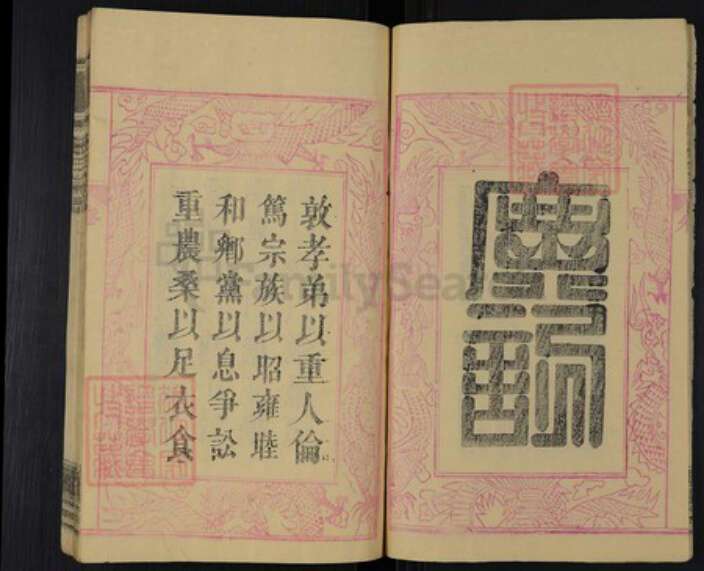 廣訓
敦孝弟以重人倫
篤宗族以昭雍睦
和鄉黨以息爭訟
重農桑以足衣食